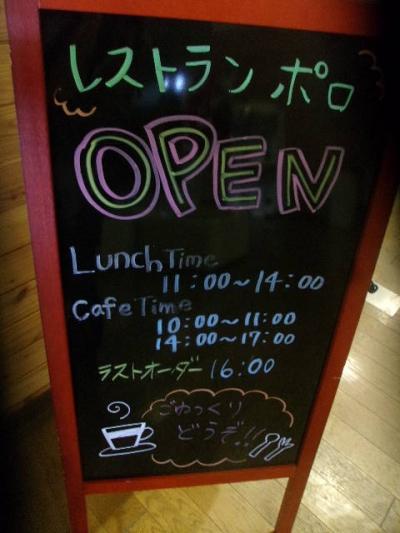 レストラン ポロ
OPEN
Lunch Time
11:00～14:00
Cafe Time
10:00～11:00
14:00～17:00
ラストオーダー 16:00
ごゆっくり
どうぞ!!